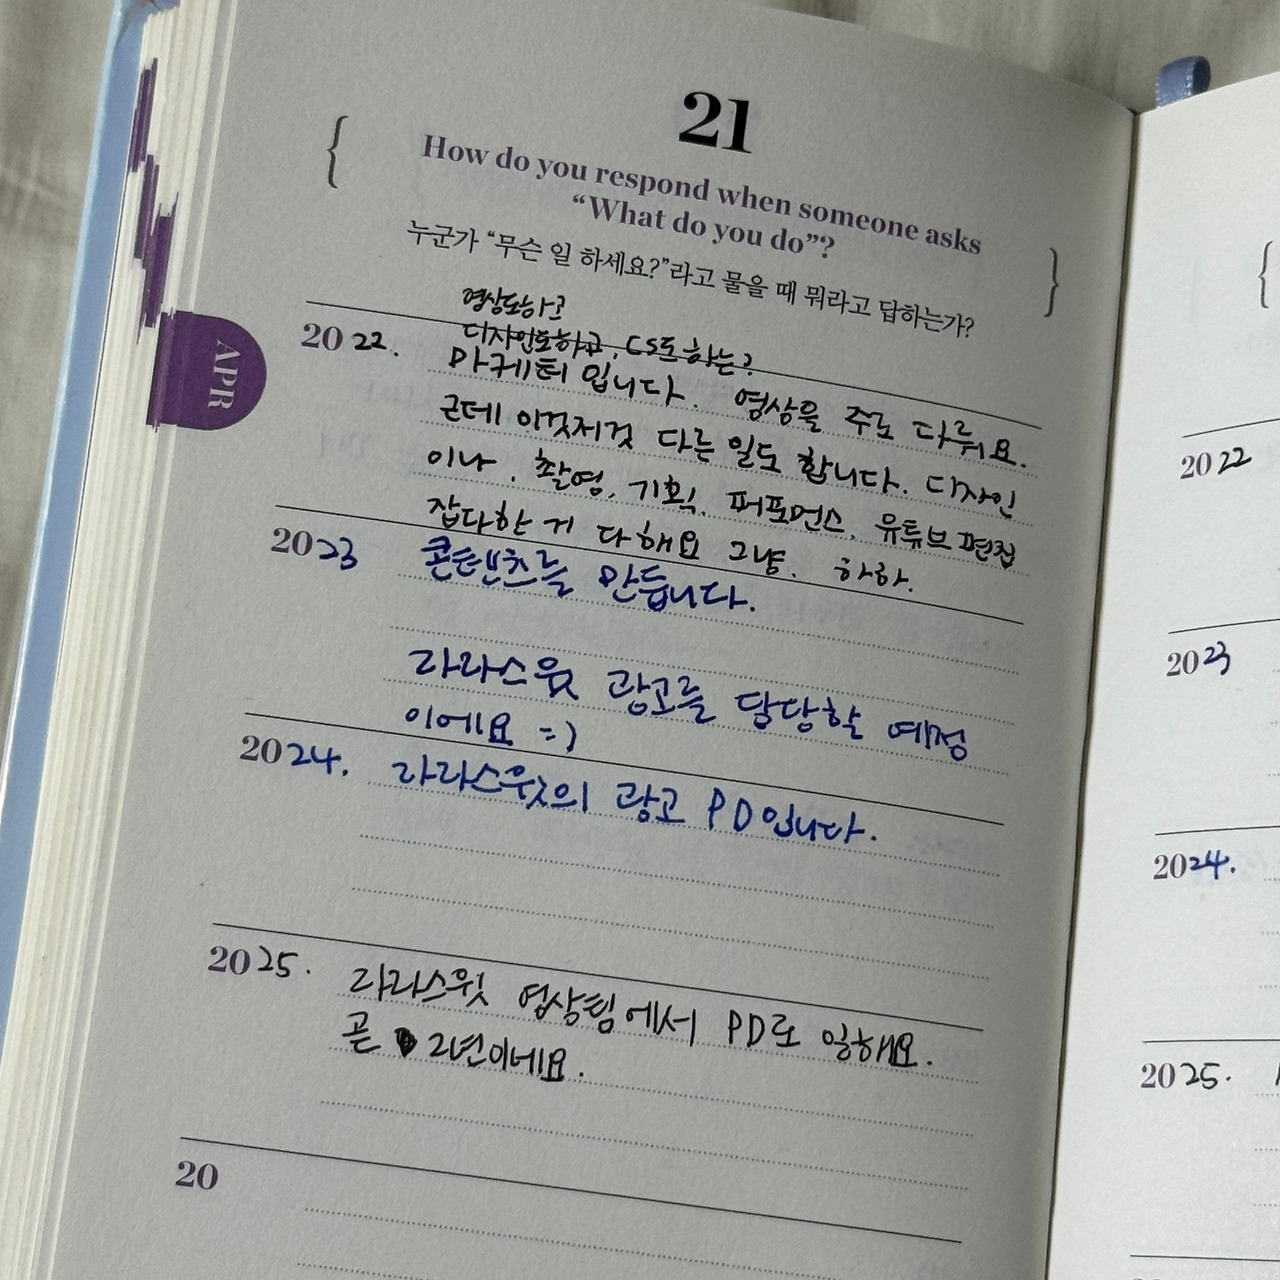 21
How do you respond when someone asks
“What do you do”?
누군가 “무슨 일 하세요?”라고 물을 때 뭐라고 답하는가?
APR
영상도하고
디자인도하고, CS도 하는?
2022. 마케터 입니다. 영상을 주로 다뤄요.
근데 이것저것 다른 일도 합니다. 디자인
이나, 촬영, 기획, 퍼포먼스, 유튜브 편집
잡다한 게 다 해요 그냥. 하하.
2023 콘텐츠를 만듭니다.
라라스윗 광고를 담당할 예정
이에요 =)
2024. 라라스윗의 광고 PD입니다.
2025. 라라스윗 영상팀에서 PD로 일해요.
곧 2년이네요.
20
2022
2023
2024.
2025.